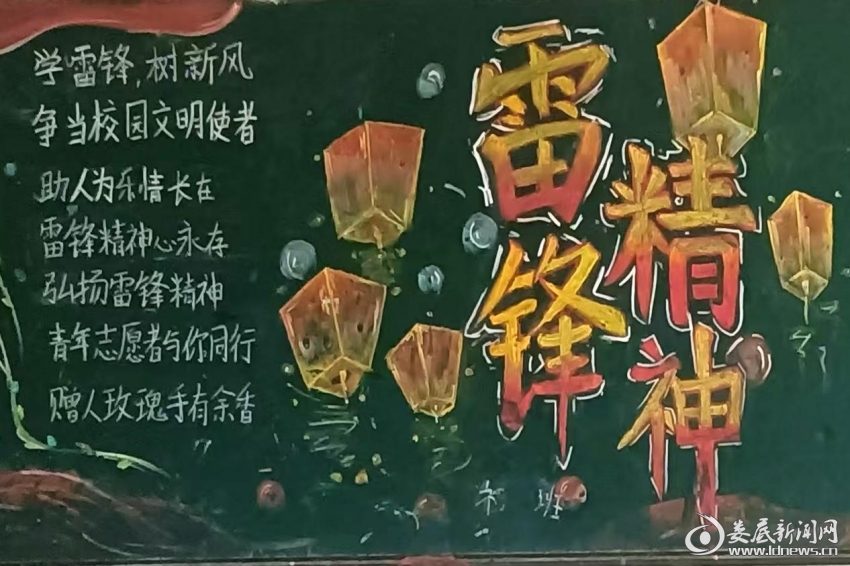 学雷锋,树新风
争当校园文明使者
助人为乐情长在
雷锋精神心永存
弘扬雷锋精神
青年志愿者与你同行
赠人玫瑰手有余香
雷锋
精神
班
娄底新闻网
www.ldnews.cn